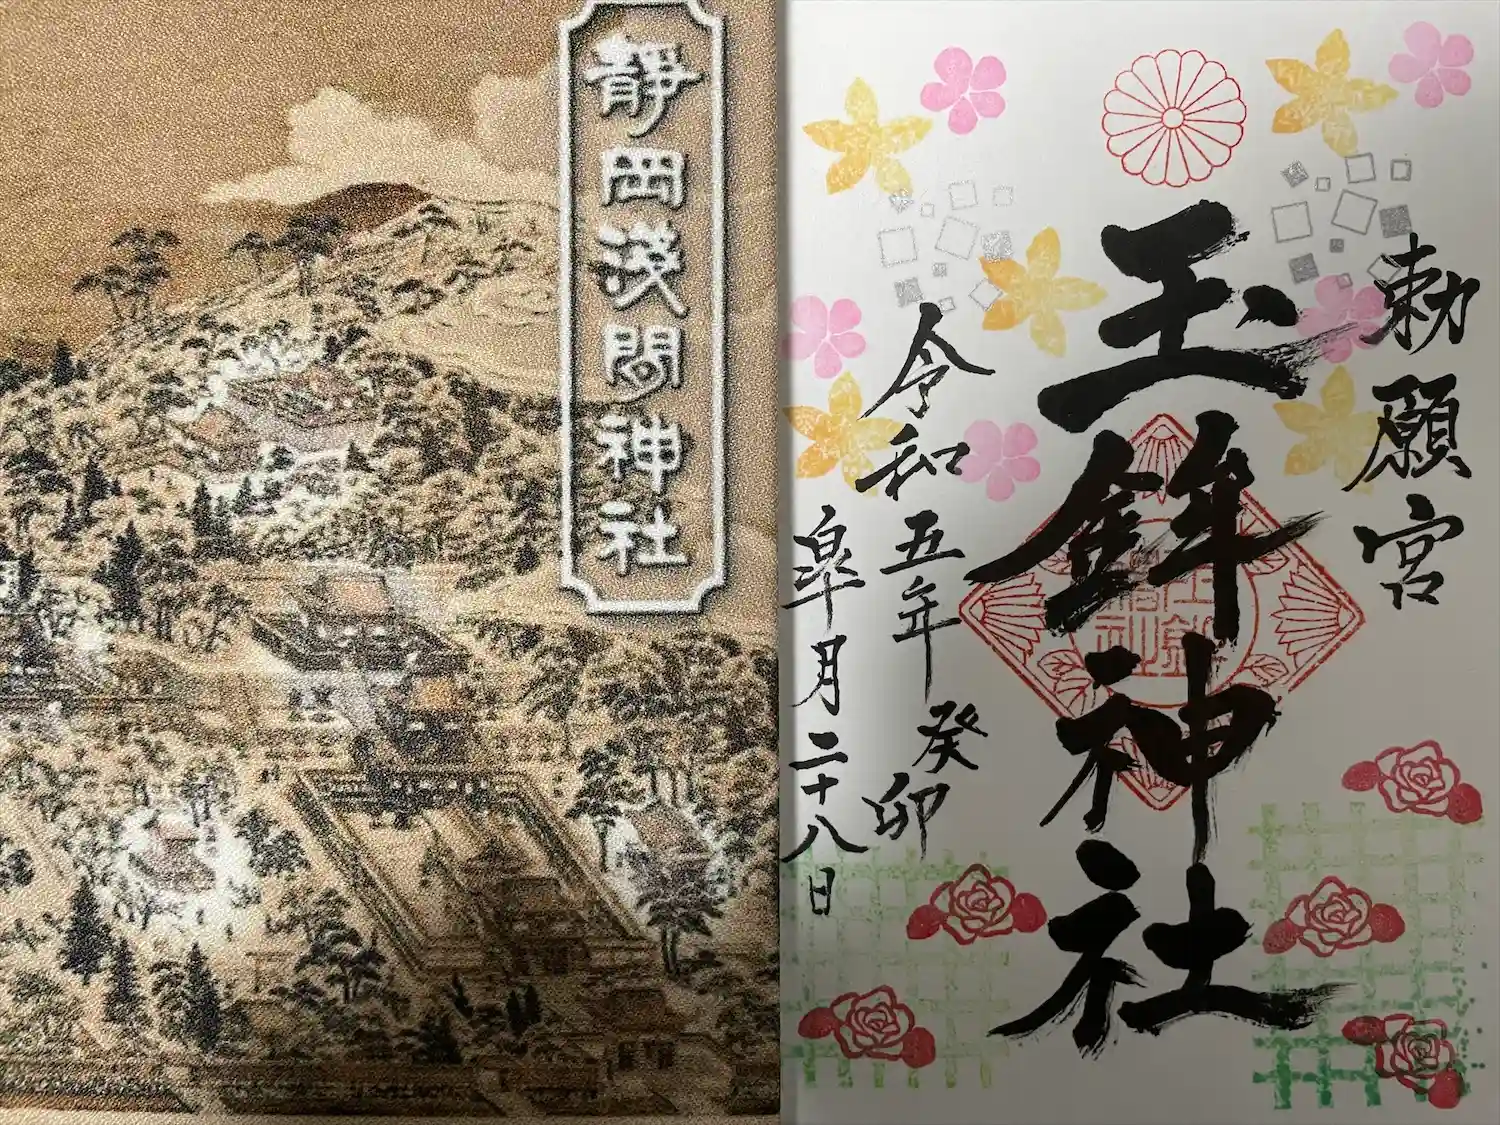 靜岡淺間神社
勅願宮
玉鉾神社
令和五年 癸卯
皐月二十八日